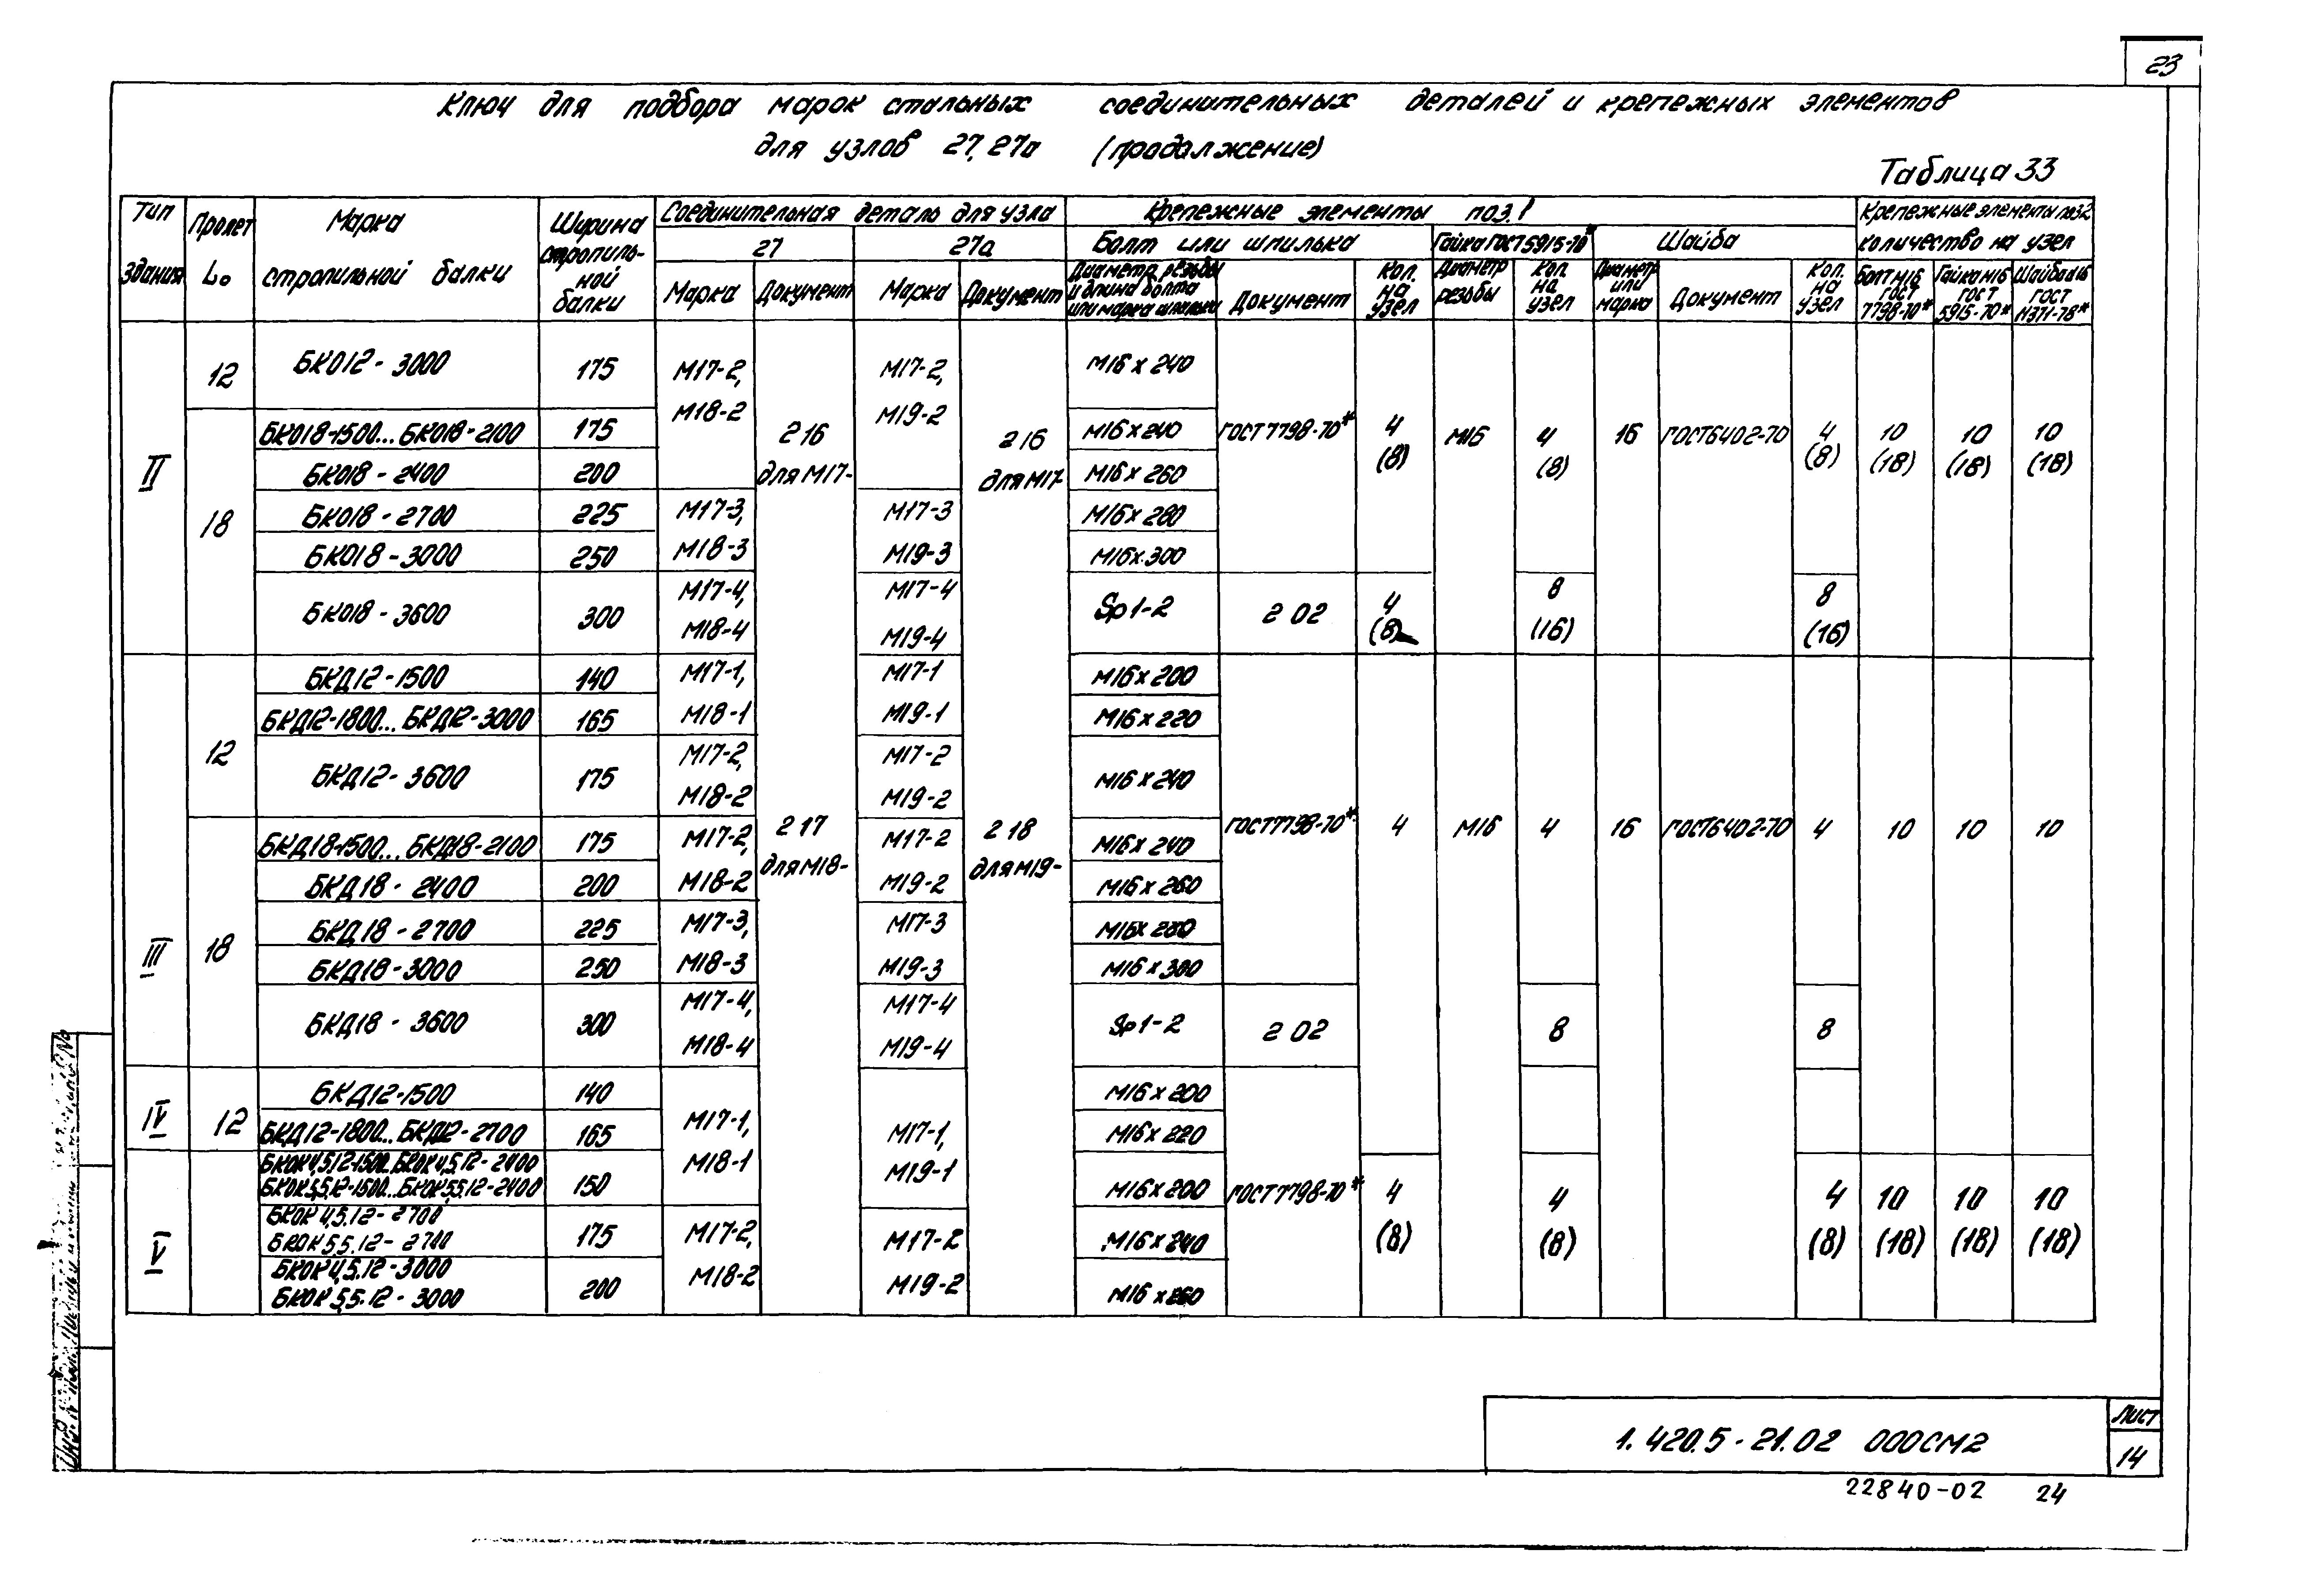 23
Ключ для подбора марок стальных соединительных деталей и крепежных элементов
для узлов 27, 27а (продолжение)
Таблица 33
Тип здания
Пролет L₀
Марка стропильной балки
Ширина стропиль-
ной балки
Соединительная деталь для узла
27
27а
Марка
Документ
Марка
Документ
Крепежные элементы поз. 1
Болт или шпилька
Гайка ГОСТ 5915-70*
Шайба
Диаметр резьбы
и длина болта
или марка шпильки
Документ
Кол. на узел
Диаметр резьбы
Кол. на узел
Диаметр или марка
Документ
Кол. на узел
Крепежные элементы поз 2
количество на узел
Болт М16 ГОСТ 7798-70*
Гайка М16 ГОСТ 5915-70*
Шайба 16 ГОСТ 11371-78*
II
12
БКО12-3000 175 М17-2, М17-2, М16х240
М18-2 М19-2
18
БКО18-1500...БКО18-2100 175 М16х240
БКО18-2400 200 М16х260
216 для М17-
216 для М17-
ГОСТ 7798-70* 4 (8) М16 4 (8) 16 ГОСТ 6402-70 4 (8) 10 (18) 10 (18) 10 (18)
БКО18-2700 225 М17-3, М17-3 М16х280
БКО18-3000 250 М18-3 М19-3 М16х300
БКО18-3600 300 М17-4, М18-4 М17-4 М19-4 Sp1-2 202 4 (8) 8 (16) 8 (16)
III
12
БКД12-1500 140 М17-1, М17-1 М16х200
БКД12-1800...БКД12-3000 165 М18-1 М19-1 М16х220
БКД12-3600 175 М17-2, М18-2 М17-2 М19-2 М16х240
217 для М18-
218 для М19-
ГОСТ 7798-70* 4 М16 4 16 ГОСТ 6402-70 4 10 10 10
18
БКД18-1500...БКД18-2100 175 М17-2, М17-2 М16х240
БКД18-2400 200 М18-2 М19-2 М16х260
БКД18-2700 225 М17-3, М17-3 М16х280
БКД18-3000 250 М18-3 М19-3 М16х300
БКД18-3600 300 М17-4, М18-4 М17-4 М19-4 Sp1-2 202 8 8
IV
12
БКД12-1500 140 М16х200
БКД12-1800...БКД12-2700 165 М17-1, М17-1, М16х220
V
БКОК4,5.12-1500...БКОК4,5.12-2400
БКОК5,5.12-1500...БКОК5,5.12-2400 150 М18-1 М19-1 М16х200
ГОСТ 7798-70* 4 (8) 4 (8) 4 (8) 10 (18) 10 (18) 10 (18)
БКОК4,5.12-2700
БКОК5,5.12-2700 175 М17-2, М17-2 М16х240
БКОК4,5.12-3000
БКОК5,5.12-3000 200 М18-2 М19-2 М16х260
1.420.5-21.02 000СМ2
Лист
14
22840-02 24